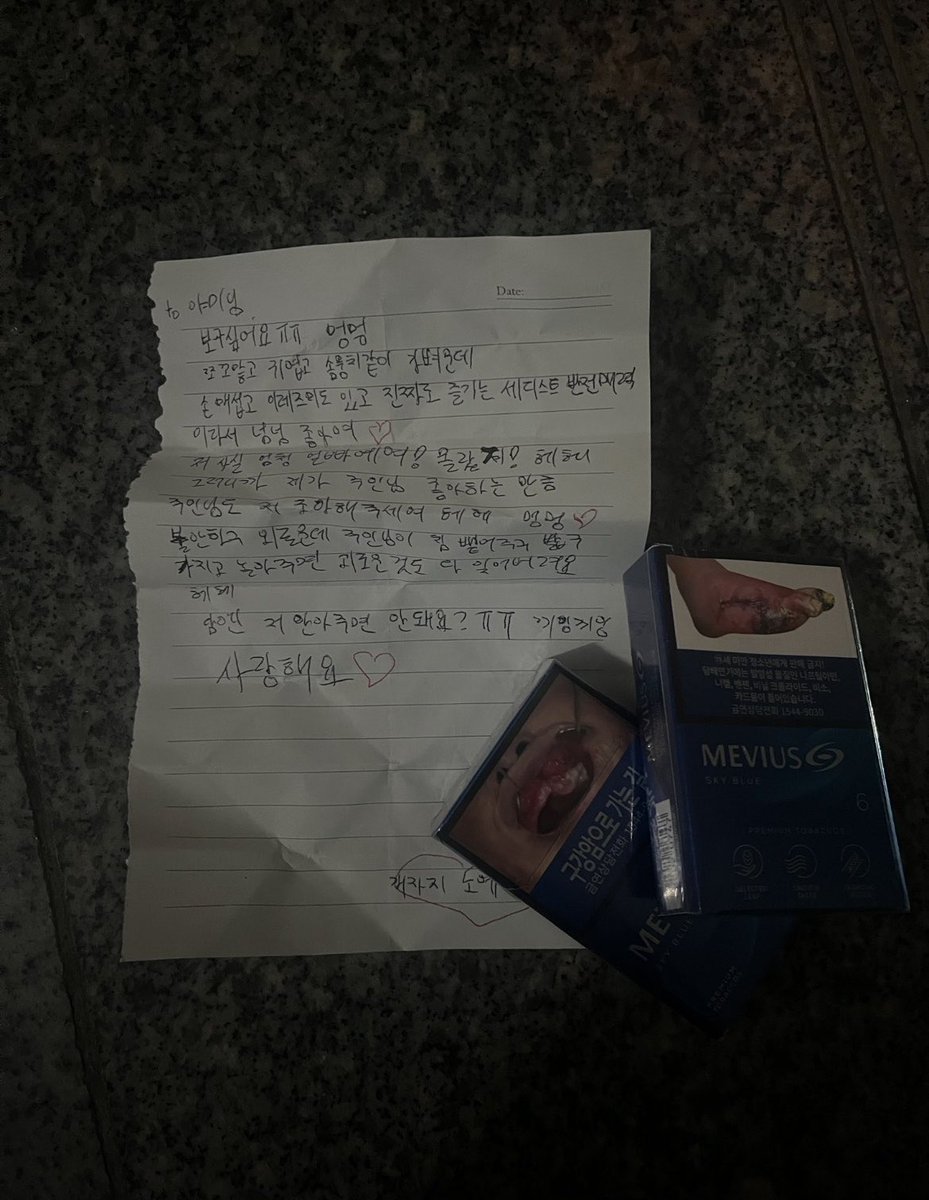 Date:
to 야미님
보구싶어요ㅠㅠ 멍멍
쪼꼬맣고 귀엽고 솜뭉치같이
손매섭고 이레즈미도 있고 진짜로 즐기는 세디스트 반전매력
이라서 넝넝 좋아여 ♡
저 사실 엄청 얼빠에여! 몰랐져! 헤헤
그러니까 제가 주인님 좋아하는 만큼
주인님도 저 조아해주세여 헤헤 멍멍♡
불안하구 외로운데 주인님이
가지고 놀아주면 괴로운것도 다 잊어버려요
헤헤
담엔 저 안아주면 안돼요?ㅠㅠ
사랑해요 ♡
19세 미만 청소년에게 판매 금지!
담배연기에는 발암성 물질인 나프틸아민,
니켈, 벤젠, 비닐 크롤라이드, 비소,
카드뮴이 들어있습니다.
금연상담전화 1544-9030
MEVIUS
SKY BLUE
6
PREMIUM TOBACCOS
구강암으로 가는 길
금연상담전화
ME
SKY BLUE
PREMIUM